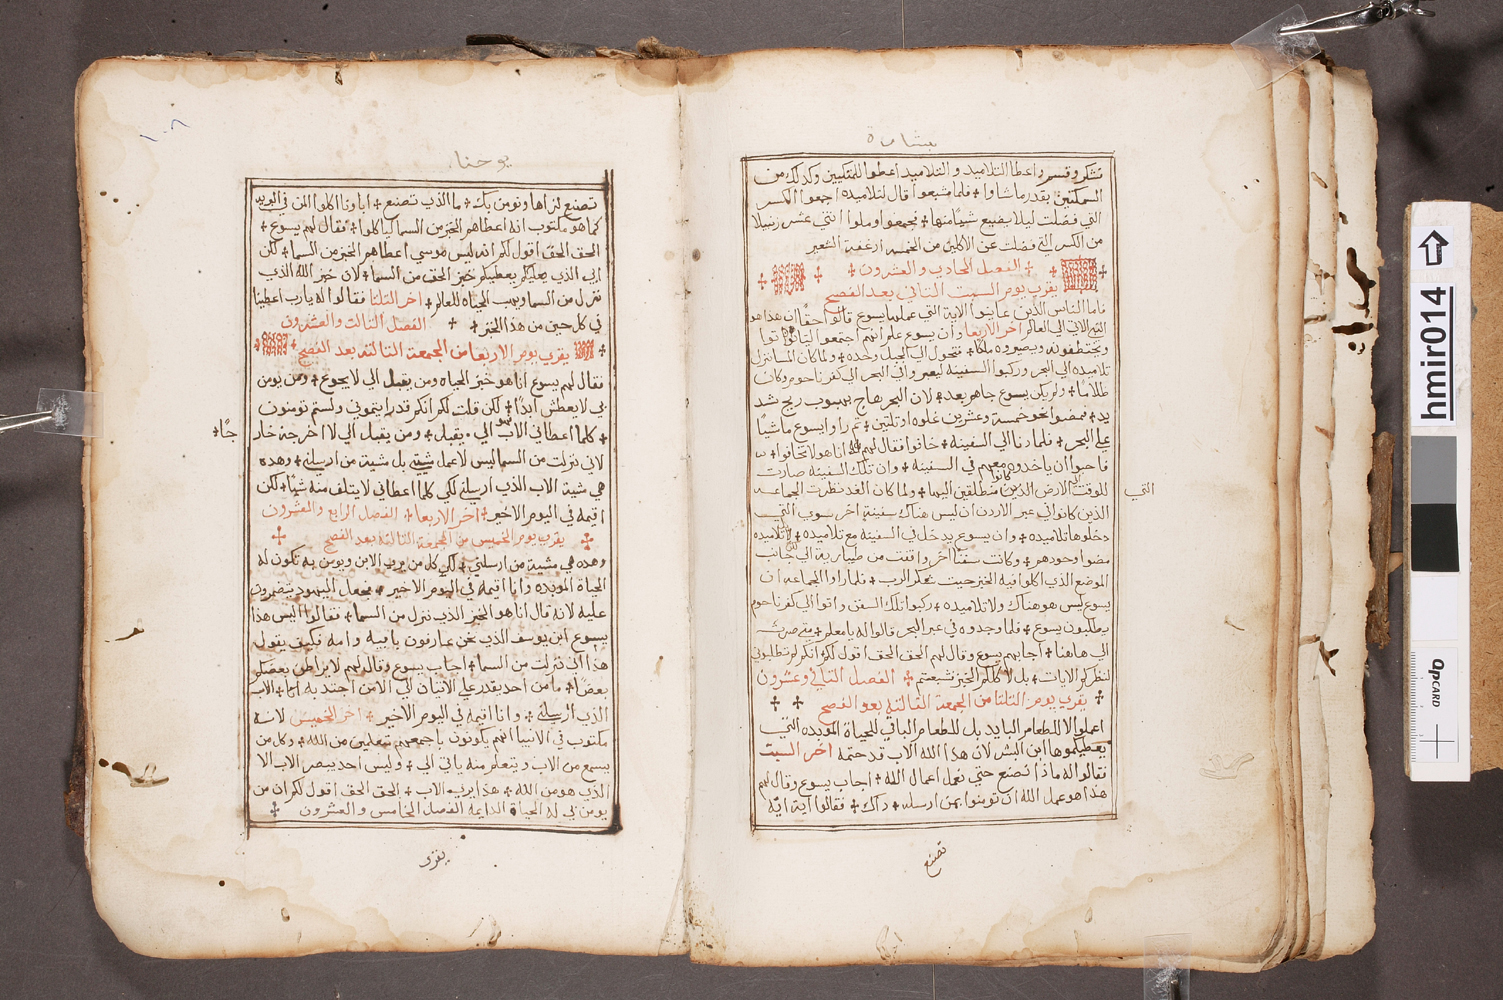 بشارة
فشكر وقسم واعطا التلاميد والتلاميد اعطوا للمتكيين وكدلك من
السمكتين بقدر ما شاوا + فلما شبعوا قال لتلاميده اجمعوا الكسر
التي فضلت ليلا يضيع شيا منها + فجمعوا وملوا اثني عشر زنبيلا
من الكسر التي فضلت عن الاكلين من الخمسه ارغفة الشعير
الفصل الحادي والعشرون
يقرى يوم السبت الثاني بعد الفصح
فاما الناس الذين عاينوا الاية التي عملها يسوع قالوا حقًا ان هدا هو
النبي الاتي الي العالم اخر الاربعا وان يسوع علم انهم اجمعوا ان ياتوا
ويختطفونه ويصيروه ملكًا + فتحول الي الجبل وحده + ولما كان المسا نزل
تلاميده الي البحر وركبوا السفينه ليعبروا الي البحر الي كفرناحوم وكان
ظلامًا + ولم يكن يسوع جاهم بعد + لان البحر هاج بهبوب ريح شد
يد + فمضوا نحو خمسة وعشرين غلوه او تلتين + تم راوا يسوع ماشيًا
على البحر + فلما دنا الي السفينه + خافوا فقال لهم انا هو لا تخافوا +
فاحبوا ان ياخدوه معهم في السفينه + وان تلك السفينه صارت
للوقت الي الارض الذين كانوا منطلقين اليها + ولما كان الغد نظرت الجماعه
التي
الذين كانوا في عبر الاردن ان ليس هناك سفينة اخرى سوى التي
دخلوها تلاميده + وان يسوع لم يدخل في السفينه مع تلاميده + لان تلاميده
مضوا وحودهم + وكانت سفنًا اخر وافت من طيبارية الي جانب
الموضع الذي اكلوا فيه الخبز حيت شكر الرب + فلما راوا الجماعه ان
يسوع ليس هو هناك ولا تلاميده + ركبوا تلك السفن واتوا الي كفرناحوم
يطلبون يسوع + فلما وجدوه في عبر البحر قالوا له يا معلم + متي صرت
الي هاهنا + اجابهم يسوع وقال لهم الحق الحق اقول لكم انكم لم تطلبوني
لنظركم الايات + بل لاكلكم الخبز فشبعتم + الفصل التاني وعشرون
يقرى يوم التلتا من الجمعة التالتة بعد الفصح
اعملوا لا للطعام البايد بل للطعام الباقي للحياة الموبده التي
يعطيكموها ابن البشر لان هدا الله الاب قد ختمه اخر السبت
فقالوا له ماذا نصنع حتي نعمل اعمال الله + اجاب يسوع وقال لهم
هدا هو عمل الله ان تومنوا بمن ارسله + داك + فقالوا اية اية
تصنع
يوحنا
١٠٨
تصنع لنراها ونومن بك + ما الذي تصنع + اباونا اكلوا المن في البريه
كما هو مكتوب انه اعطاهم الخبز من السما لياكلوا + فقال لهم يسوع +
الحق الحق اقول لكم انه ليس موسي اعطاهم الخبز من السما + لكن
ابي الذي يعطيكم خبز الحق من السما + لان خبز الله الذي
نزل من السما ويهب الحياه للعالم + اخر التلتا فقالوا له يا رب اعطينا
في كل حين من هذا الخبز + الفصل التالت والعشرون
يقرى يوم الاربعا من الجمعة التالته بعد الفصح
فقال لهم يسوع انا هو خبز الحياه ومن يقبل الي لا يجوع + ومن يومن
بي لا يعطش ابدًا + لكن قلت لكم انكم قد رايتموني ولستم تومنون
+ كلما اعطاني الاب فهو الي يقبل + ومن يقبل الي لا اخرجه خار
جًا +
لاني نزلت من السما ليس لاعمل مشيتي بل مشية من ارسلني + وهده
هي مشية الاب الذي ارسلني لكي كلما اعطاني لا يتلف منه شيا + لكن
اقيمه في اليوم الاخير + اخر الاربعا + الفصل الرابع والعشرون
يقرى يوم الخميس من الجمعة التالته بعد الفصح
وهده هي مشية من ارسلني + لكي كل من يرى الابن ويومن به تكون له
الحياة الموبده وانا اقيمه في اليوم الاخير + فجعل اليهود يتقمقمون
عليه لانه قال انا هو الخبز الذي نزل من السما + فقالوا اليس هذا
يسوع ابن يوسف الذي نحن عارفون بابيه وامه فكيف يقول
هذا اني نزلت من السما + اجاب يسوع وقال لهم لا يراطن بعضكم
بعضًا + ما من احد يقدر على الاتيان الي الا من اجتدبه اليا + الاب
الذي ارسلني + وانا اقيمه في اليوم الاخير + اخر الخميس لانه
مكتوب في الانبيا انهم يكونون باجمعهم متعلمين من الله + وكل من
يسمع من الاب ويتعلم منه ياتي الي + وليس احد يبصر الاب الا
الذي هو من الله + هذا يرى الاب + الحق الحق اقول لكم ان من
يومن بي له الحياة الدايمه الفصل الخامس والعشرون +
يقرى
hmir014
QPCARD